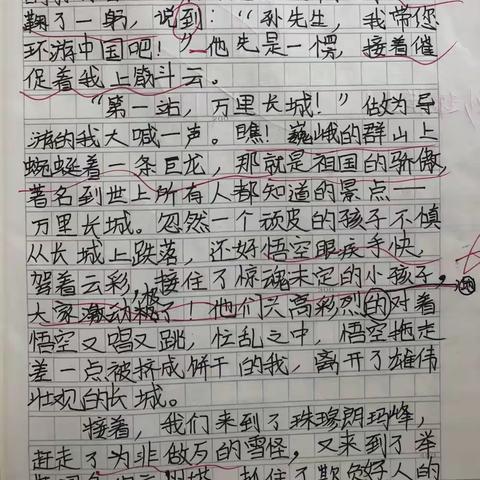 鞠了一躬，说到：“孙先生，我带您
环游中国吧！”他先是一愣，接着催
促着我上筋斗云。
“第一站，万里长城！”做为导
游的我大喊一声。瞧！巍峨的群山上
蜿蜒着一条巨龙，那就是祖国的骄傲，
著名到世上所有人都知道的景点——
万里长城。忽然一个顽皮的孩子不慎
从长城上跌落，还好悟空眼疾手快，
驾着云彩，接住了惊魂未定的小孩子，
大家激动极了！他们兴高彩烈的对着
地
悟空又唱又跳，忙乱之中，悟空拖走
差一点被挤成饼干的我，离开了雄伟
壮观的长城。
接着，我们来到了珠瑏朗玛峰，
赶走了为非做歹的雪怪，又来到了举
抓住了欺负好人的